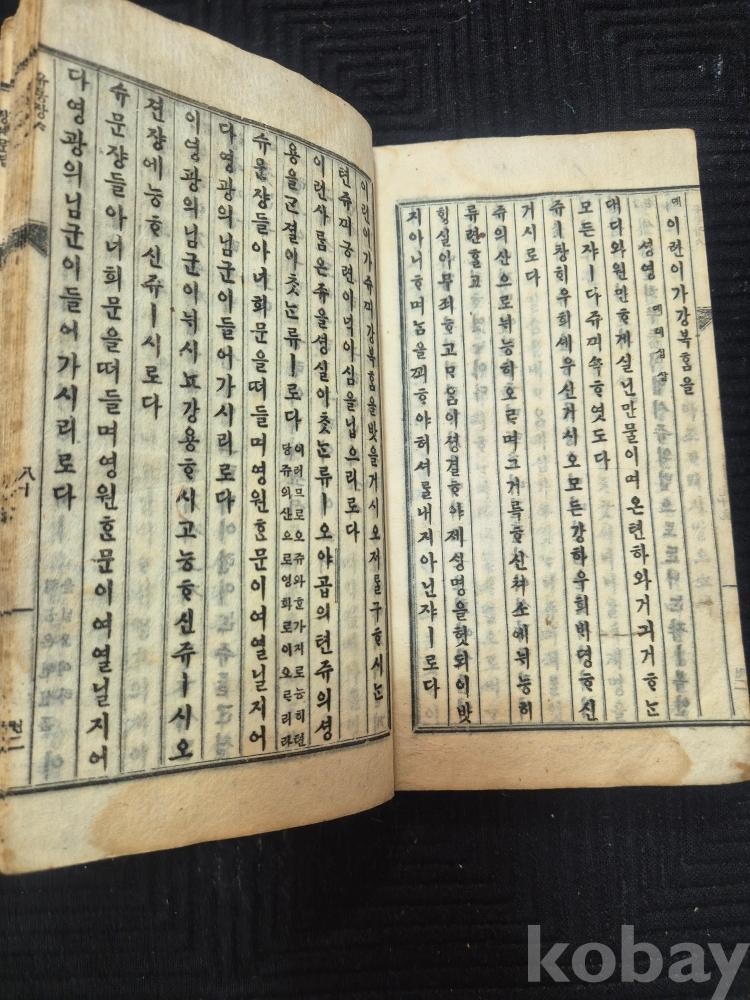 예 이런이가강복홈을
셩영
대다와원만ᄒᆞ게실닌만물이며온텬하와거긔거ᄒᆞᄂᆞᆫ
모든쟈ㅣ다쥬ᄭᅴ쇽ᄒᆞ엿도다
쥬ㅣ창ᄒᆡ우희셰우신거시오모든강하우희박뎡ᄒᆞ신
거시로다
쥬의산으로뉘능히오ᄅᆞ며그거륵ᄒᆞ신쳐소에뉘능히
류련ᄒᆞᆯ고
ᄒᆡᆼ실이무죄ᄒᆞ고ᄆᆞᄋᆞᆷ이셩결ᄒᆞ야제셩명을헛되이밧
지아니ᄒᆞ며ᄂᆞᆷ을ᄭᅬᄒᆞ야허셔ᄅᆞᆯ내지아닌쟈ㅣ로다
이런이가쥬ᄭᅴ강복홈을밧을거시오저ᄅᆞᆯ구ᄒᆞ시ᄂᆞᆫ
텬쥬ᄭᅴ긍련이넉이심을닙으리로다
이런사ᄅᆞᆷ은쥬을셩실이ᄎᆞᆺᄂᆞᆫ류ㅣ오야곱의텬쥬의셩
용을근졀이ᄎᆞᆺᄂᆞᆫ류ㅣ로다
이러므로오쥬와ᄒᆞᆫ가지로능히텬
당쥬의산으로영화로이오ᄅᆞ리라
슈문쟝들아너희문을ᄯᅥ들며영원ᄒᆞᆫ문이여열닐지어
다영광의님군이들어가시리로다
이영광의님군이뉘시뇨강용ᄒᆞ시고능ᄒᆞ신쥬ㅣ시오
젼쟝에능ᄒᆞ신쥬ㅣ시로다
슈문쟝들아너희문을ᄯᅥ들며영원ᄒᆞᆫ문이여열닐지어
다영광의님군이들어가시리로다
八十
kobay